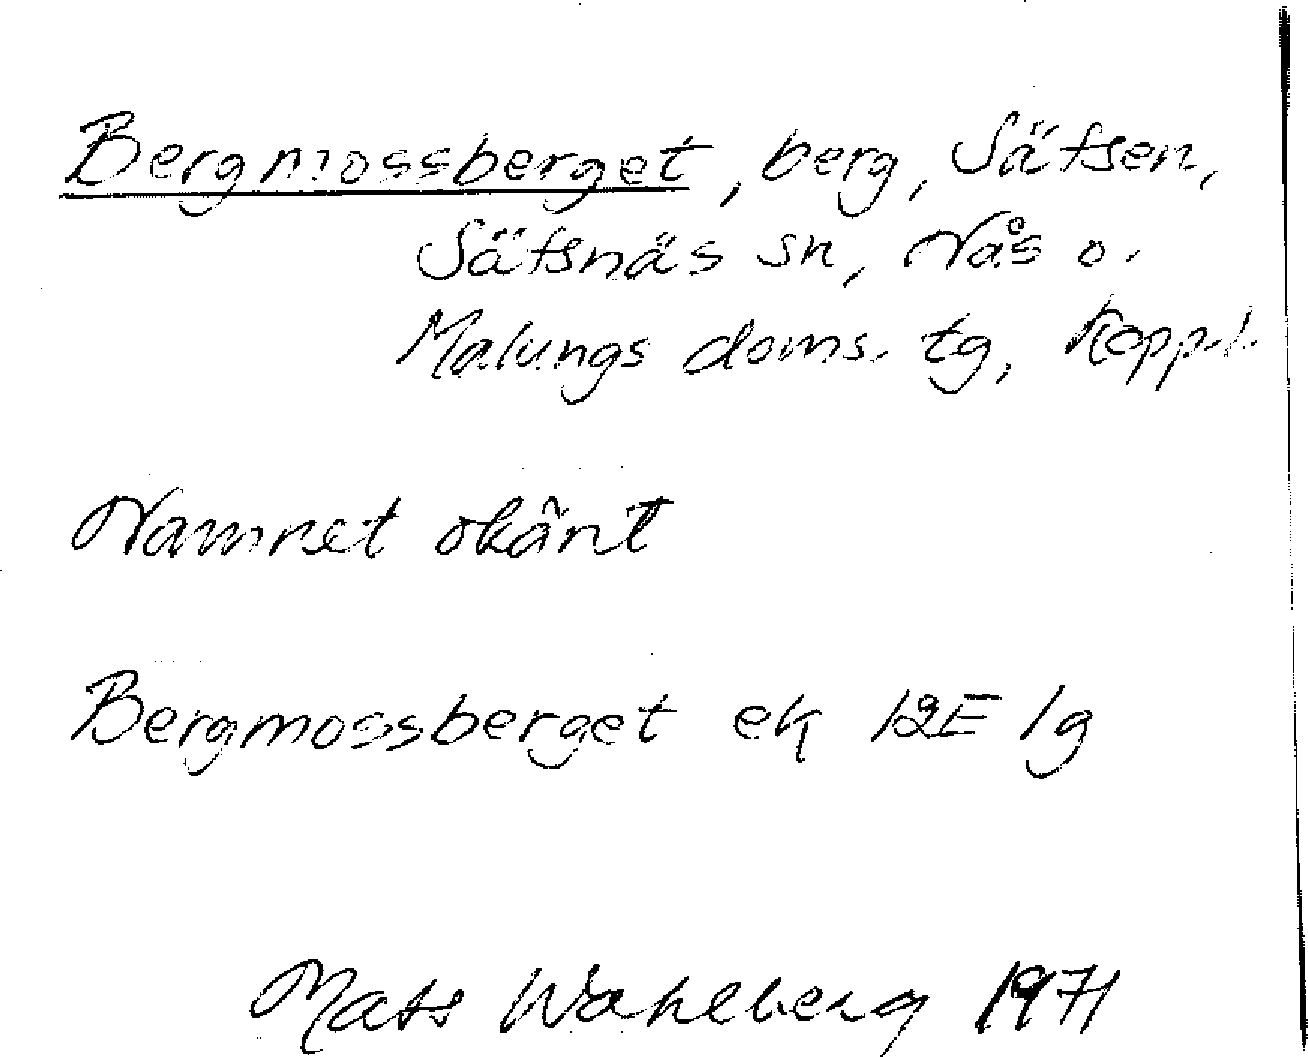 Bergmossberget, berg, Sätsen,
Sätsnäs sn, Nås o.
Malungs doms. tg, Kopp.l.
Namnet okänt
Bergmossberget ek 12E 1g
Mats Wahlberg 1971